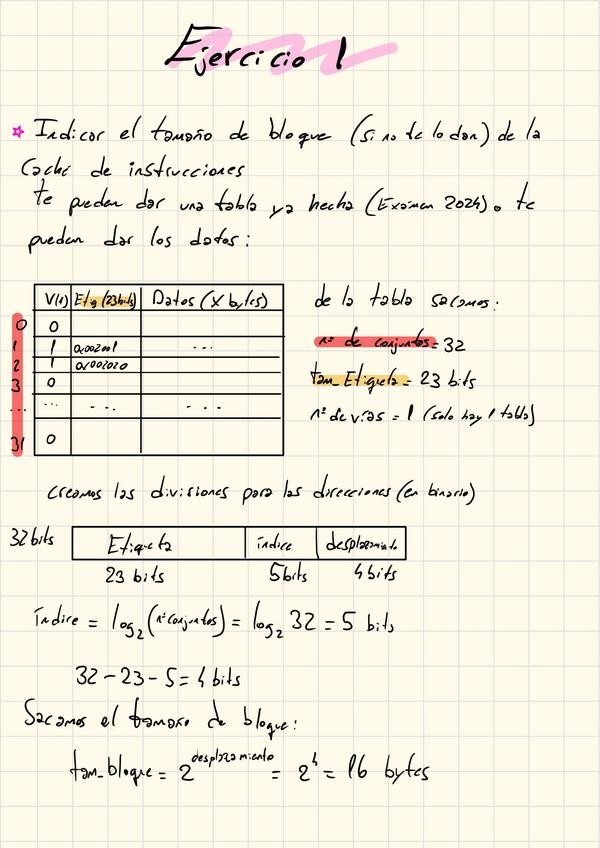 Ejercicio 1
☆ Indicar el tamaño de bloque (si no te lo dan) de la
Caché de instrucciones
te pueden dar una tabla ya hecha (Examen 2024) o te
pueden dar los datos:
V(1) Etq (23bits) Datos (X bytes)
0 0
1 1 0x002001 ...
2 1 0x002020
3 0
... ... ... ...
31 0
de la tabla sacamos:
nº de conjuntos = 32
tam_Etiqueta = 23 bits
nº de vías = 1 (solo hay 1 tabla)
Creamos las divisiones para las direcciones (en binario)
32 bits Etiqueta índice desplazamiento
23 bits 5bits 4 bits
índice = log₂ (nº conjuntos) = log₂ 32 = 5 bits
32 - 23 - 5 = 4 bits
Sacamos el tamaño de bloque:
tam_bloque = 2^desplazamiento = 2^4 = 16 bytes